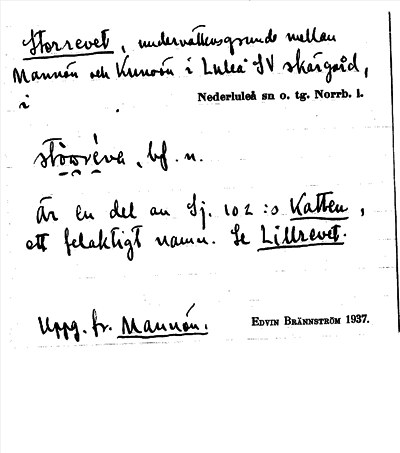 Storrevet, undervattensgrund mellan
Mannön och Kunoön i Luleå SV skärgård,
i
Nederluleå sn o. tg. Norrb. l.
stòrréva, bf. n.
är en del av Sj. 102 :o Katten,
ett felaktigt namn. Se Lillrevet.
Uppg. fr. Mannön.
EDVIN BRÄNNSTRÖM 1937.